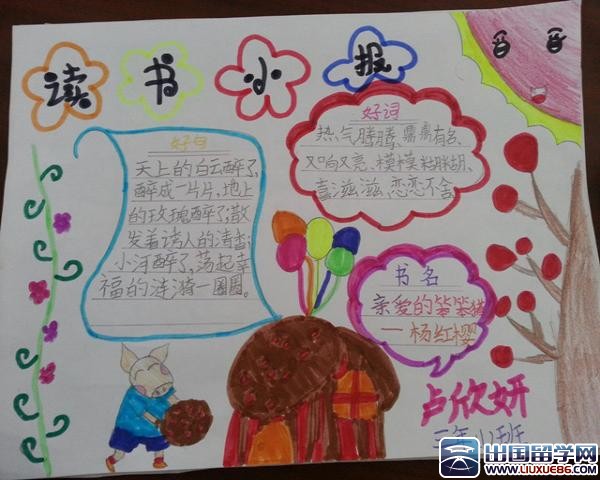 读书小报
好句
天上的白云醉了,
醉成一片片,地上
的玫瑰醉了,散
发着诱人的清香;
小河醉了,荡起幸
福的涟漪一圈圈。
好词
热气腾腾、鼎鼎有名、
又响又亮、模模糊糊、
喜滋滋、恋恋不舍
书名
亲爱的笨笨猪
——杨红樱
卢欣妍
三年
班
出国留学网
WWW.LIUXUE86.COM